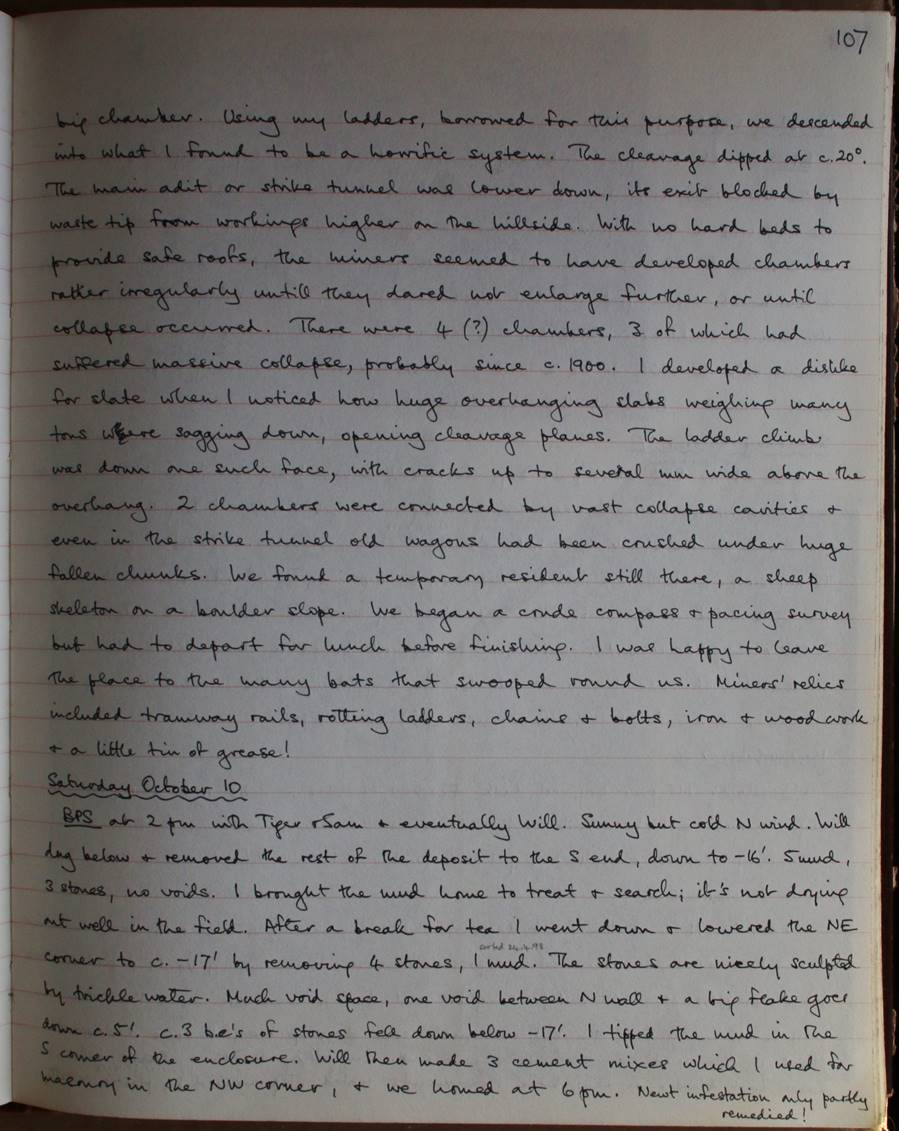 107
big chamber. Using my ladders, borrowed for this purpose, we descended
into what I found to be a horrific system. The cleavage dipped at c.20°.
The main adit or strike tunnel was lower down, its exit blocked by
waste tip from workings higher on the hillside. With no hard beds to
provide safe roofs, the miners seemed to have developed chambers
rather irregularly untill they dared not enlarge further, or until
collapse occurred. There were 4 (?) chambers, 3 of which had
suffered massive collapse, probably since c.1900. I developed a dislike
for slate when I noticed how huge overhanging slabs weighing many
tons were sagging down, opening cleavage planes. The ladder climb
was down one such face, with cracks up to several mm wide above the
overhang. 2 chambers were connected by vast collapse cavities +
even in the strike tunnel old wagons had been crushed under huge
fallen chunks. We found a temporary resident still there, a sheep
skeleton on a boulder slope. We began a crude compass + pacing survey
but had to depart for lunch before finishing. I was happy to leave
the place to the many bats that swooped round us. Miners' relics
included tramway rails, rotting ladders, chains + bolts, iron + woodwork
+ a little tin of grease!
Saturday October 10
BPS at 2 pm with Tiger + Sam + eventually Will. Sunny but cold N wind. Will
dug below + removed the rest of the deposit to the S end, down to -16'. 5 mud,
3 stones, no voids. I brought the mud home to treat + search; it's not drying
out well in the field. After a break for tea I went down + lowered the NE
sorted 24.4.98
corner to c. -17' by removing 4 stones, 1 mud. The stones are nicely sculpted
by trickle water. Much void space, one void between N wall + a big flake goes
down c.5'. c.3 b.e's of stones fell down below -17'. I tipped the mud in the
S corner of the enclosure. Will then made 3 cement mixes which I used for
masonry in the NW corner, + we homed at 6 pm. Newt infestation only partly
remedied!